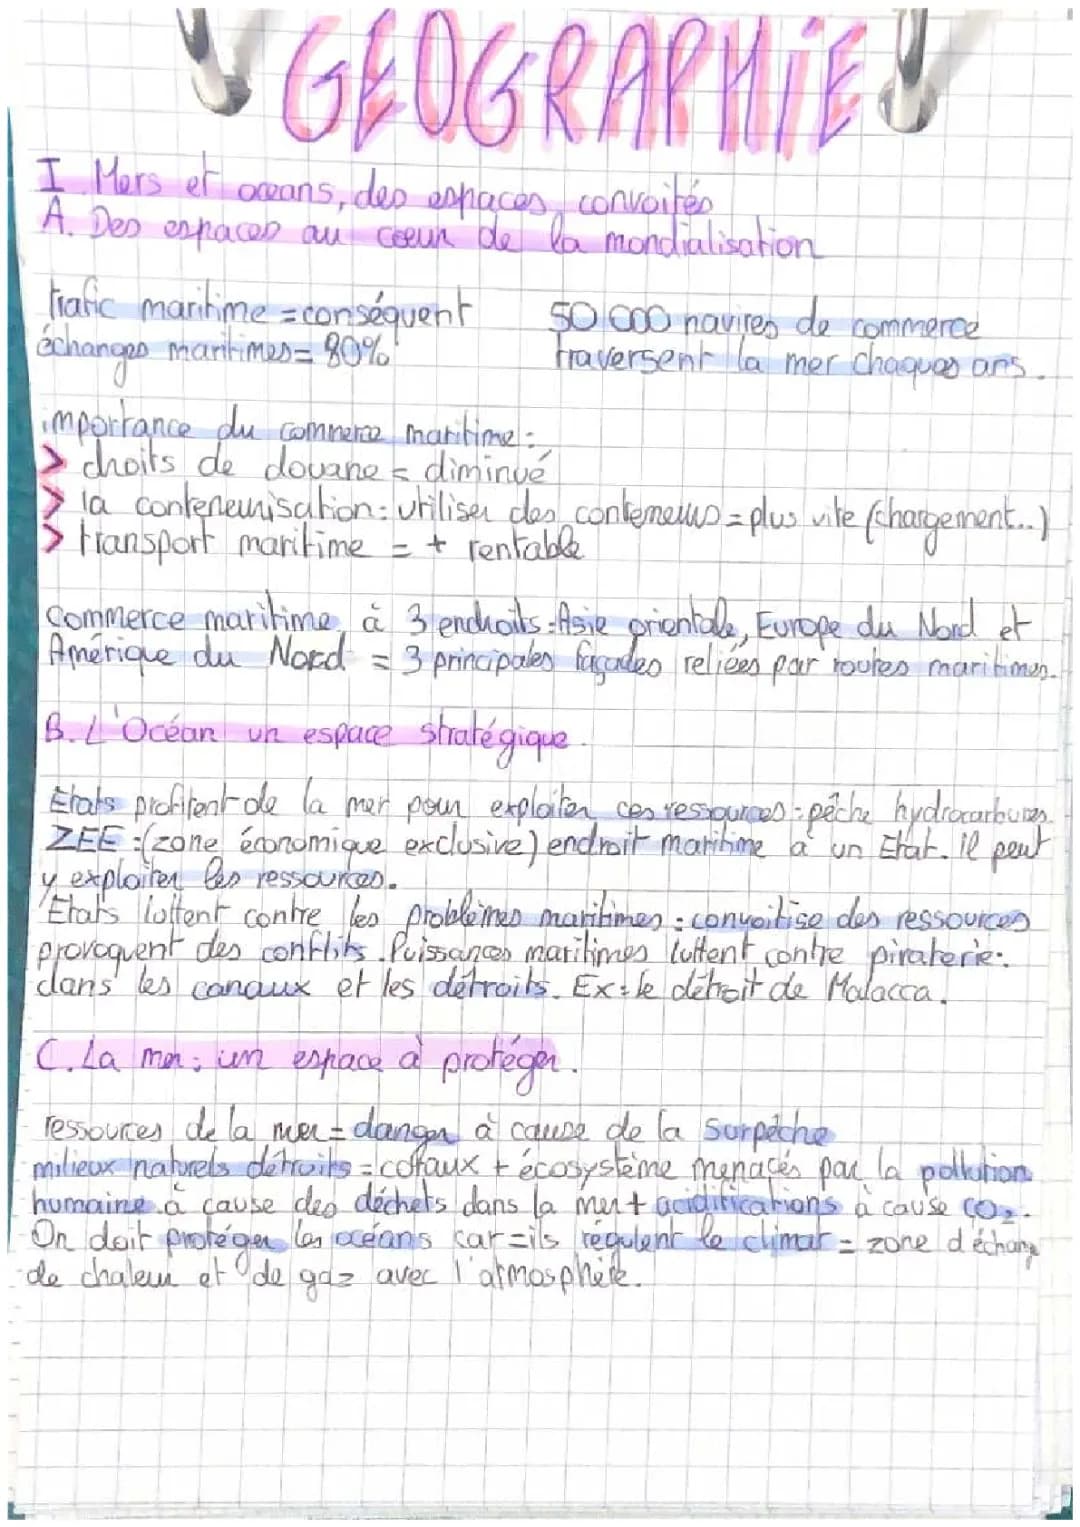 GEOGRAPHiE
I. Mers et océans, des espaces convoités
A. Des espaces au coeur de la mondialisation
trafic maritime = conséquent
échanges maritimes = 80%
50 000 navires de commerce
traversent la mer chaques ans.
importance du commerce maritime :
> droits de douane = diminué
> la conteneurisation : utiliser des conteneurs = plus vite (chargement...)
> transport maritime = + rentable
Commerce maritime à 3 endroits : Asie orientale, Europe du Nord et
Amérique du Nord = 3 principales façades reliées par routes maritimes.
B. L'Océan un espace stratégique.
Etats profitent de la mer pour exploiter ces ressources : pêche hydrocarbures.
ZEE : (zone économique exclusive) endroit maritime à un Etat. il peut
y exploiter les ressources.
Etats luttent contre les problèmes maritimes : convoitise des ressources
provoquent des conflits. Puissances maritimes luttent contre piraterie :
dans les canaux et les détroits. Ex : le détroit de Malacca.
C. La mer : un espace à protéger.
ressources de la mer = danger à cause de la surpêche
milieux naturels détruits = coraux + écosystème menacés par la pollution
humaine à cause des déchets dans la mer + acidifications à cause CO₂.
On doit protéger les océans car = ils régulent le climat = zone d'échange
de chaleur et de gaz avec l'atmosphère.